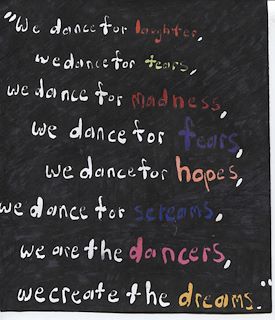 "We dance for laughter,
we dance for tears,
we dance for madness,
we dance for fears,
we dance for hopes,
we dance for screams,
we are the dancers,
we create the dreams."